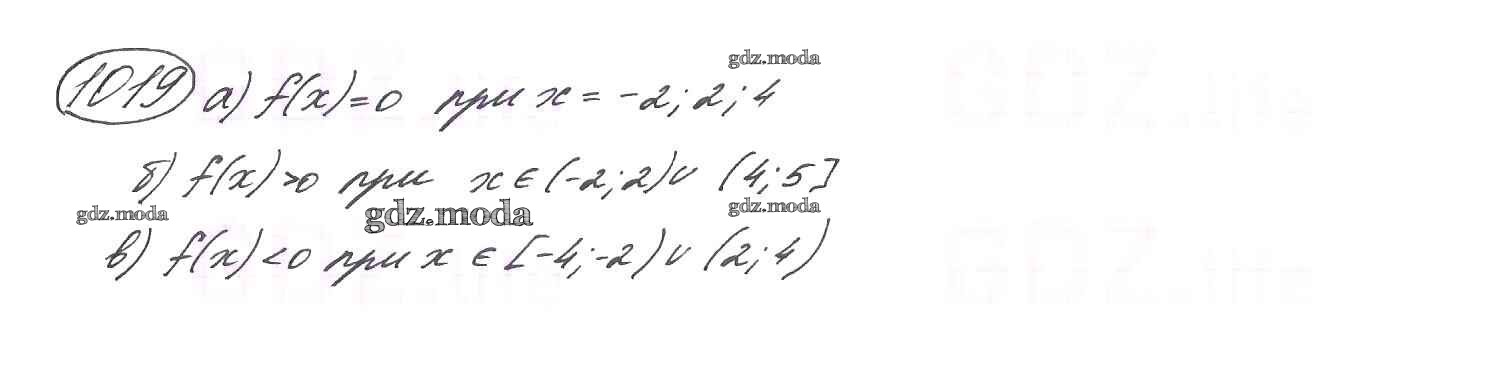 gdz.moda
1019 а) f(x)=0 при x = -2; 2; 4
б) f(x)>0 при x ∈ (-2; 2) ∪ (4; 5]
gdz.moda gdz.moda gdz.moda
в) f(x)<0 при x ∈ [-4; -2) ∪ (2; 4)
GDZ.life GDZ.life
GDZ.life GDZ.life